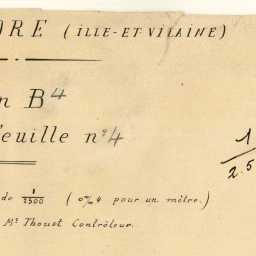 ORE (ILLE-ET-VILAINE)
n B4
feuille n° 4
1
2.5
de 1/2500 (0m/m 4 pour un mètre.)
Mr Thouet Contrôleur.